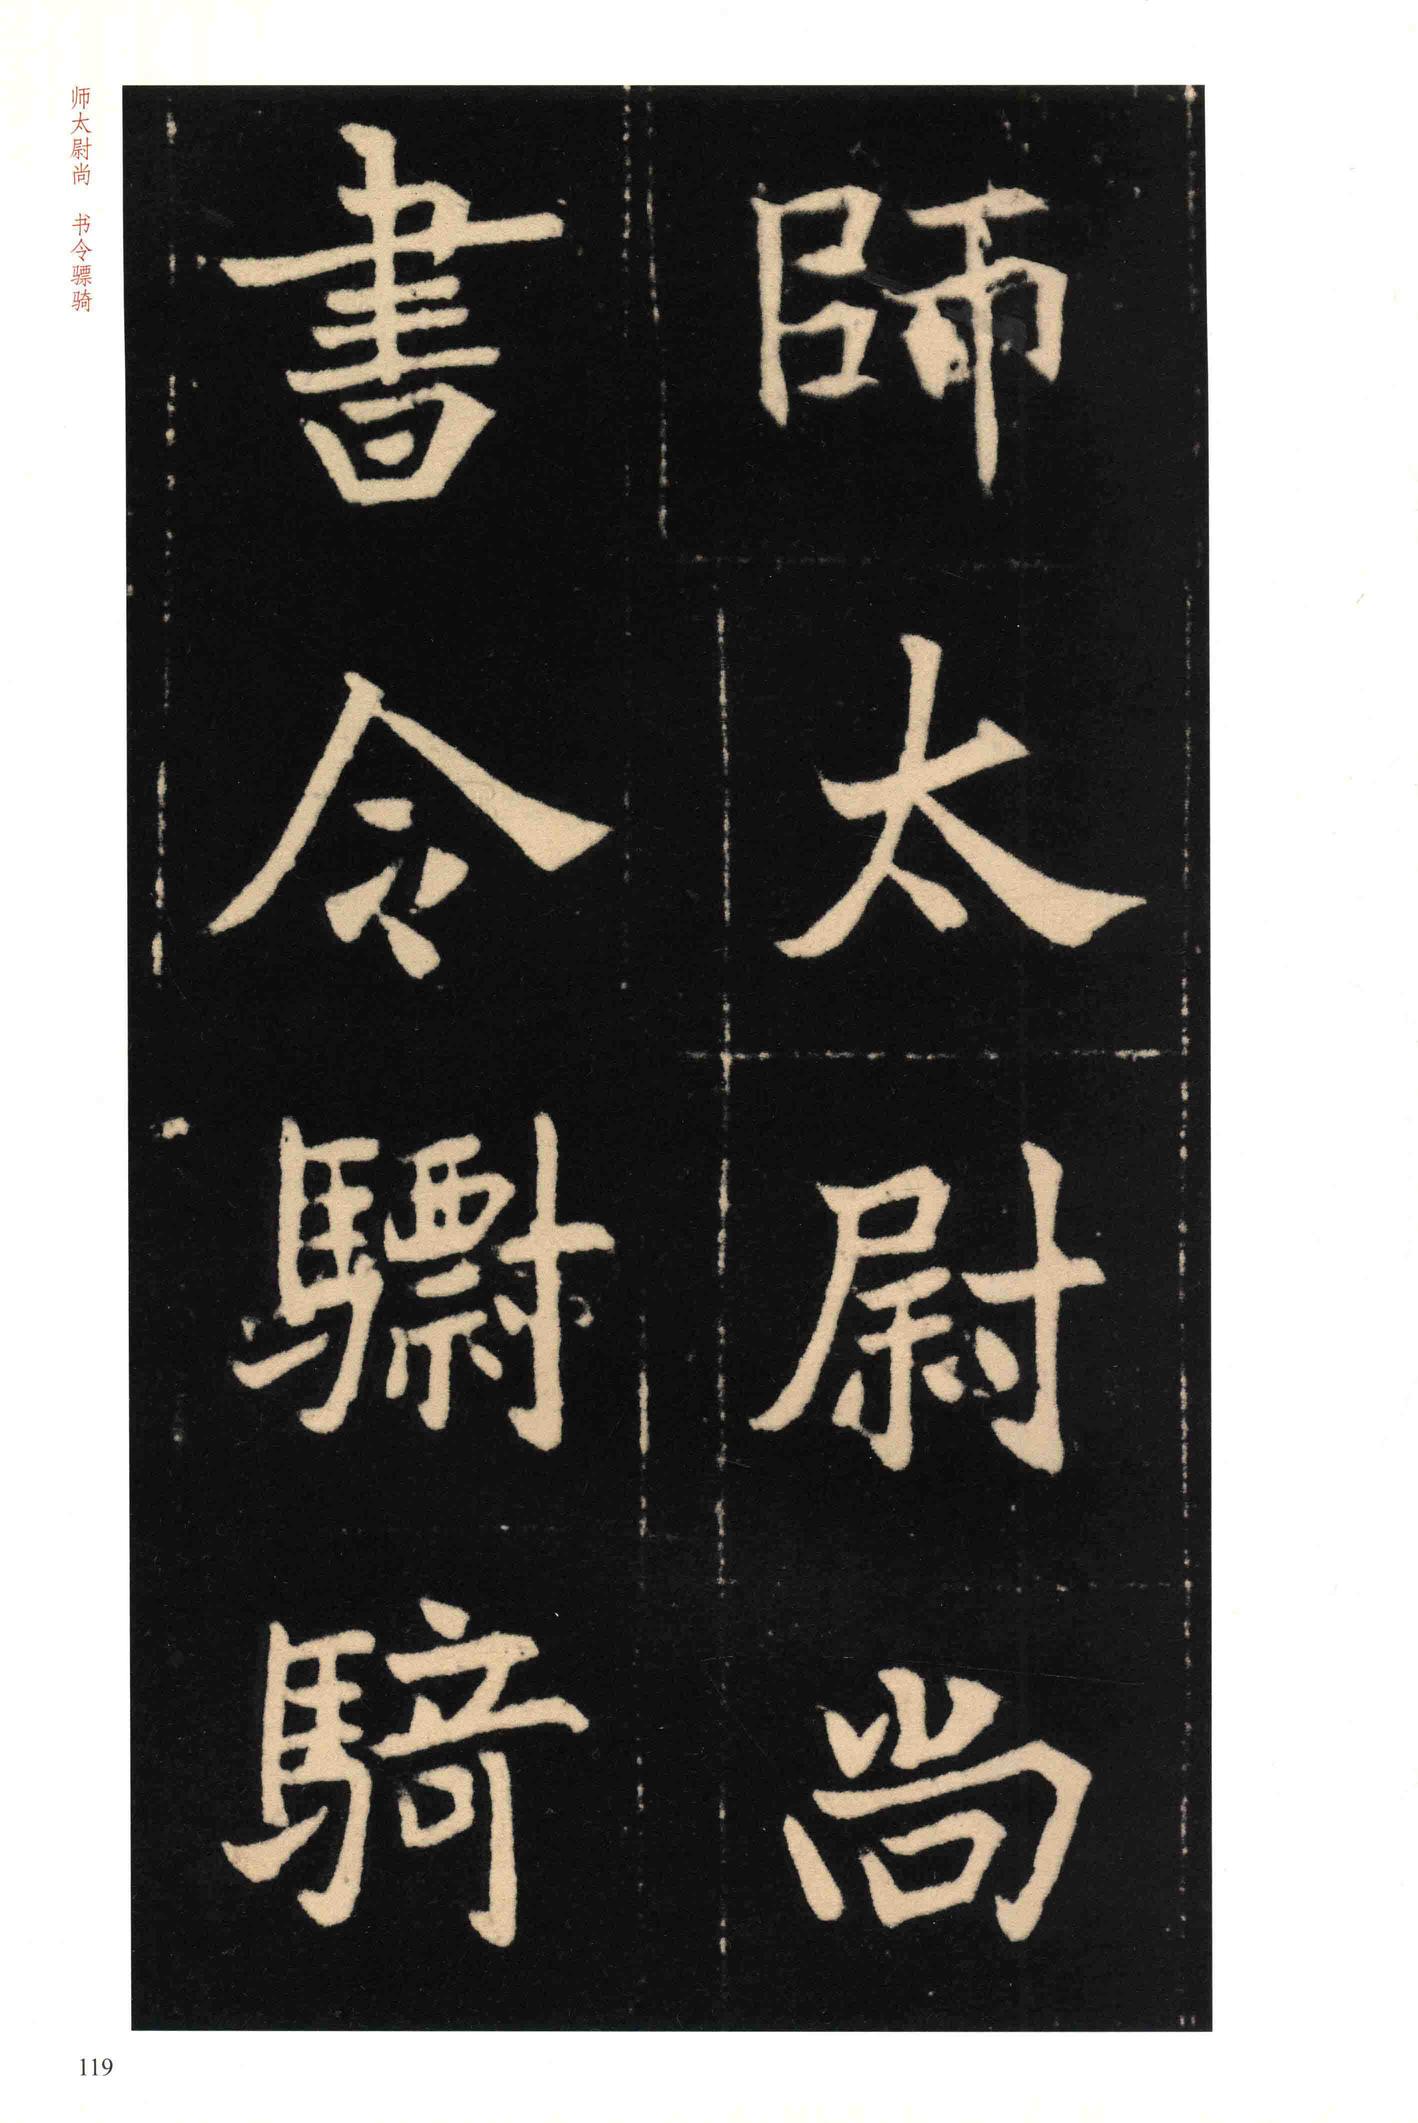 師太尉尚
書令驃騎
师太尉尚 书令骠骑
119